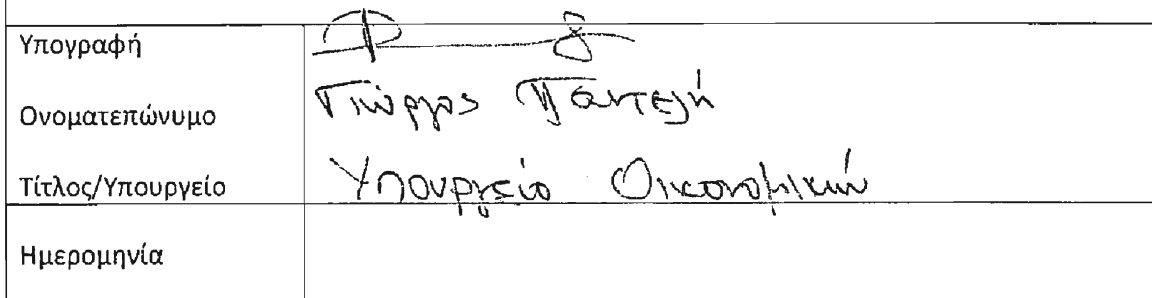 Υπογραφή
Ονοματεπώνυμο Γιώργος Παντελή
Τίτλος/Υπουργείο Υπουργείο Οικονομικών
Ημερομηνία